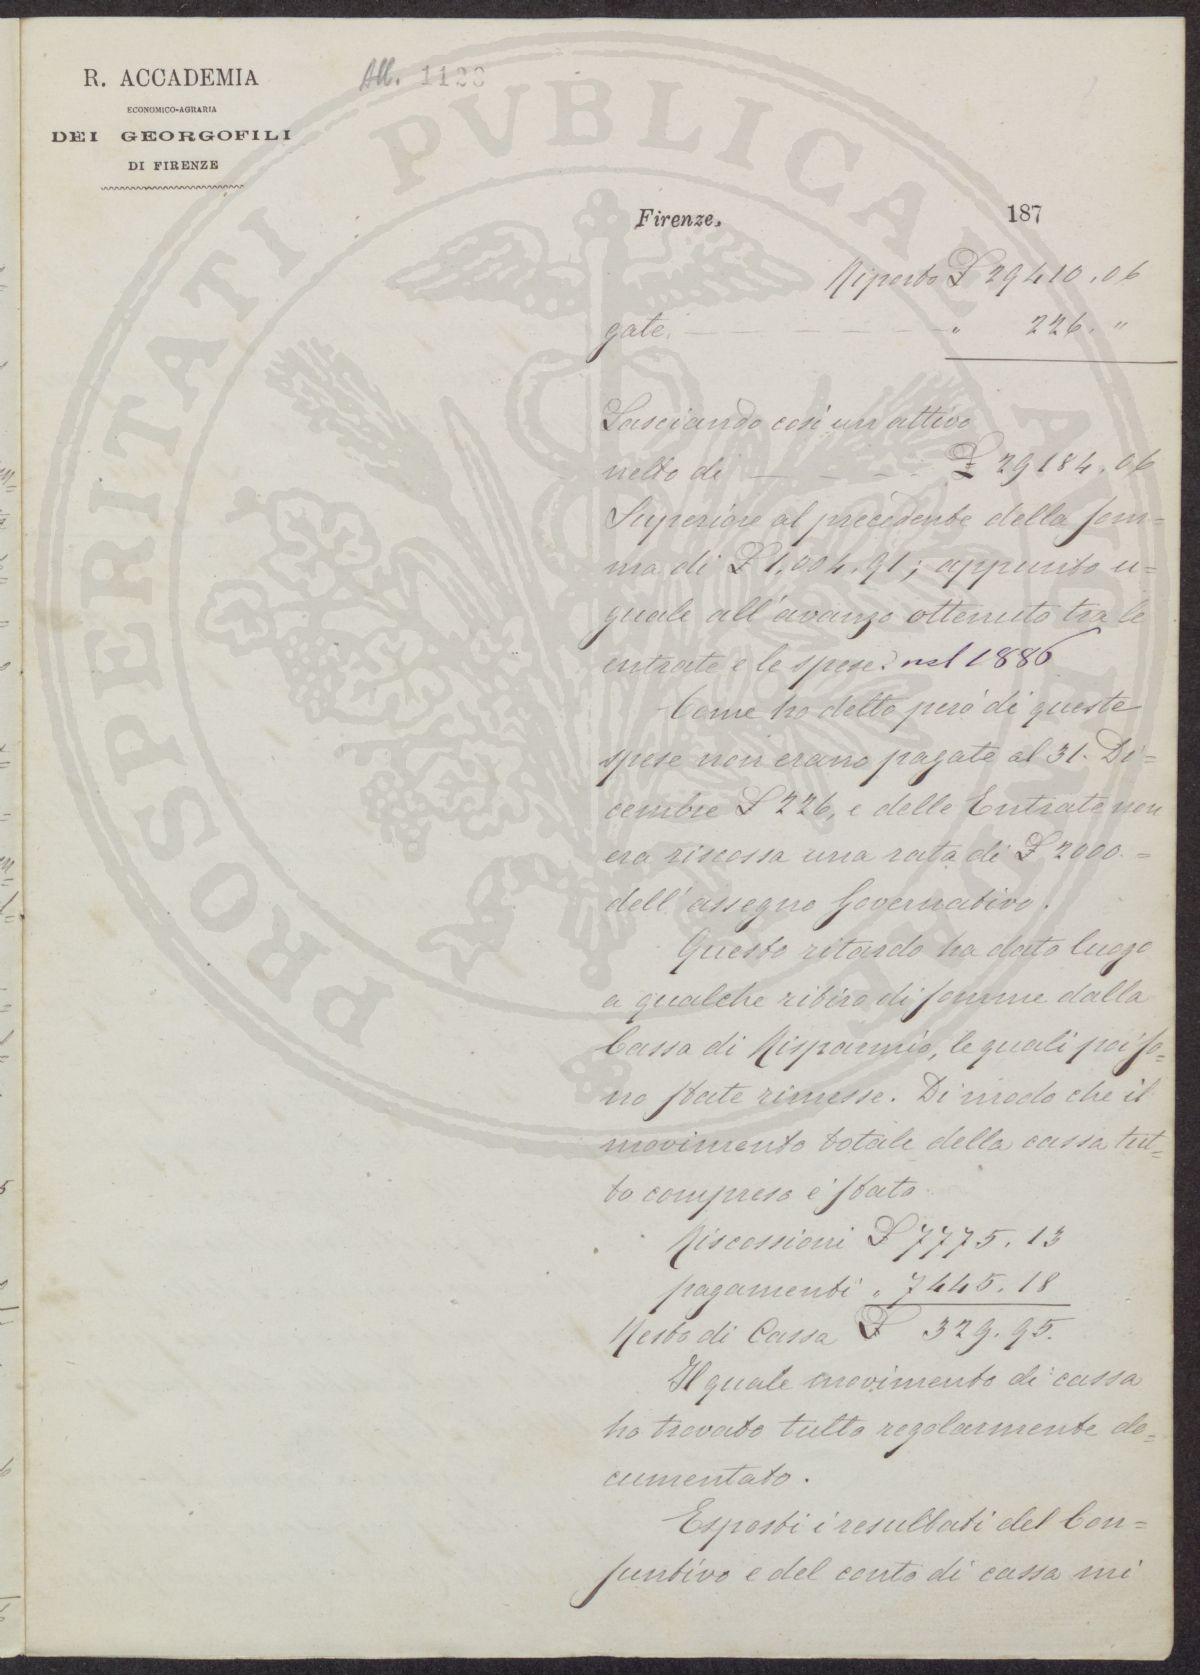 R. ACCADEMIA
ECONOMICO-AGRARIA
DEI GEORGOFILI
DI FIRENZE
All. 1123
PROSPERITATI PVBLICAE AVGENDAE
Firenze, 187
Riporto £ 29410.06
gate. " 226. "
Lasciando così un attivo
netto di £ 29184.06
Superiore al precedente della som=
ma di £ 1,004.91; appunto u=
guale all'avanzo ottenuto tra le
entrate e le spese. nel 1886
Come ho detto però di queste
spese non erano pagate al 31. Di=
cembre £ 226, e delle Entrate non
era riscossa una rata di £ 2000.=
dell'assegno Governativo.
Questo ritardo ha dato luogo
a qualche ritiro di somme dalla
Cassa di Risparmio, le quali poi so=
no state rimesse. Di modo che il
movimento totale della cassa tut=
to compreso è stato
Riscossioni £ 7775.13
pagamenti " 7445.18
Resto di Cassa £ 329.95.
Il quale movimento di cassa
ho trovato tutto regolarmente do=
cumentato.
Esposti i resultati del Con=
suntivo e del conto di cassa mi